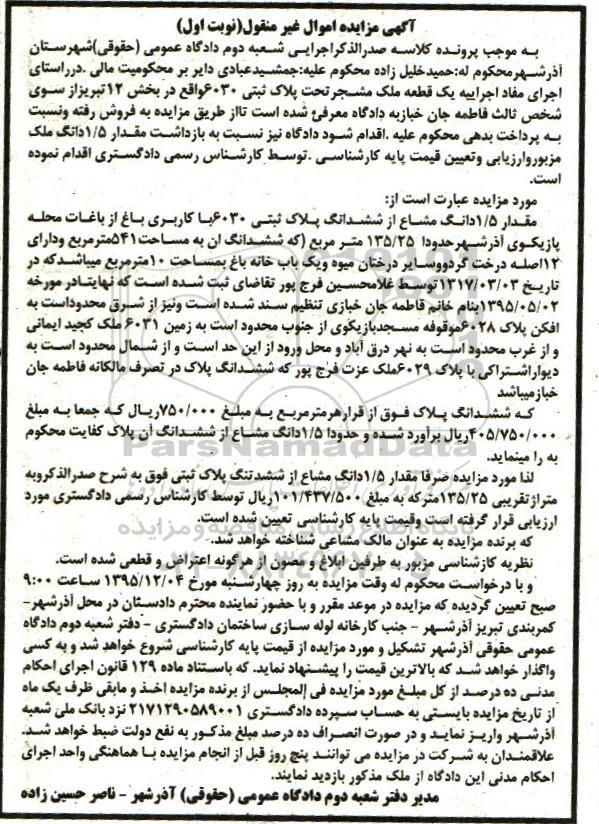 آگهی مزایده اموال غیر منقول(نوبت اول)
به موجب پرونده کلاسه صدرالذکراجرایی شعبه دوم دادگاه عمومی (حقوقی)شهرستان
آذرشهرمحکوم له:حمیدخلیل زاده محکوم علیه:جمشیدعبادی دایر بر محکومیت مالی .درراستای
اجرای مفاد اجراییه یک قطعه ملک مشجرتحت پلاک ثبتی ۶۰۳۰واقع در بخش ۱۲تبریزاز سوی
شخص ثالث فاطمه جان خبازبه دادگاه معرفی شده است تااز طریق مزایده به فروش رفته ونسبت
به پرداخت بدهی محکوم علیه .اقدام شود دادگاه نیز نسبت به بازداشت مقدار ۱/۵دانگ ملک
مزبوروارزیابی وتعیین قیمت پایه کارشناسی .توسط کارشناس رسمی دادگستری اقدام نموده
است.
مورد مزایده عبارت است از:
مقدار ۱/۵دانگ مشاع از ششدانگ پلاک ثبتی ۶۰۳۰با کاربری باغ از باغات محله
پازیکوی آذرشهرحدودا ۱۳۵/۲۵ متر مربع (که ششدانگ ان به مساحت۵۴۱مترمربع ودارای
۱۲اصله درخت گردووسایر درختان میوه ویک باب خانه باغ بمساحت ۱۰مترمربع میباشدکه در
تاریخ ۱۳۱۷/۰۳/۰۳توسط غلامحسین فرج پور تقاضای ثبت شده است که نهایتادر مورخه
۱۳۹۵/۰۵/۰۲بنام خانم فاطمه جان خبازی تنظیم سند شده است ونیز از شرق محدوداست به
افکن پلاک ۶۰۲۸موقوفه مسجدبازیگوی از جنوب محدود است به زمین ۶۰۳۱ ملک کجید ایمانی
و از غرب محدود است به نهر درق آباد و محل ورود از این حد است و از شمال محدود است به
دیواراشتراکی با پلاک ۶۰۲۹ملک عزت فرج پور که ششدانگ پلاک در تصرف مالکانه فاطمه جان
خبازمیباشد
که ششدانگ پلاک فوق از قرارهرمترمربع به مبلغ ۷۵۰/۰۰۰ریال که جمعا به مبلغ
۴۰۵/۷۵۰/۰۰۰ریال برآورد شده و حدودا ۱/۵دانگ مشاع از ششدانگ آن پلاک کفایت محکوم
به را مینماید.
لذا مورد مزایده صرفا مقدار ۱/۵دانگ مشاع از ششدتنگ پلاک ثبتی فوق به شرح صدرالذکروبه
متراژتقریبی ۱۳۵/۲۵مترکه به مبلغ ۱۰۱/۴۳۷/۵۰۰ریال توسط کارشناس رسمی دادگستری مورد
ارزیابی قرار گرفته است وقیمت پایه کارشناسی تعیین شده است.
که برنده مزایده به عنوان مالک مشاعی شناخته خواهد شد.
نظریه کارشناسی مزبور به طرفین ابلاغ و مصون از هرگونه اعتراض و قطعی شده است.
و با درخواست محکوم له وقت مزایده به روز چهارشنبه مورخ ۱۳۹۵/۱۲/۰۴ ساعت ۹:۰۰
صبح تعیین گردیده که مزایده در موعد مقرر و با حضور نماینده محترم دادستان در محل آذرشهر-
کمربندی تبریز آذرشهر - جنب کارخانه لوله سازی ساختمان دادگستری - دفتر شعبه دوم دادگاه
عمومی حقوقی آذرشهر تشکیل و مورد مزایده از قیمت پایه کارشناسی شروع خواهد شد و به کسی
واگذار خواهد شد که بالاترین قیمت را پیشنهاد نماید. که باستناد ماده ۱۲۹ قانون اجرای احکام
مدنی ده درصد از کل مبلغ مورد مزایده فی المجلس از برنده مزایده اخذ و مابقی ظرف یک ماه
از تاریخ مزایده بایستی به حساب سپرده دادگستری ۲۱۷۱۲۹۰۵۸۹۰۰۱ نزد بانک ملی شعبه
آذرشهر واریز نماید و در صورت انصراف ده درصد مبلغ مذکور به نفع دولت ضبط خواهد شد.
علاقمندان به شرکت در مزایده می توانند پنج روز قبل از انجام مزایده با هماهنگی واحد اجرای
احکام مدنی این دادگاه از ملک مذکور بازدید نمایند.
مدیر دفتر شعبه دوم دادگاه عمومی (حقوقی) آذرشهر - ناصر حسین زاده
ParsNamadData